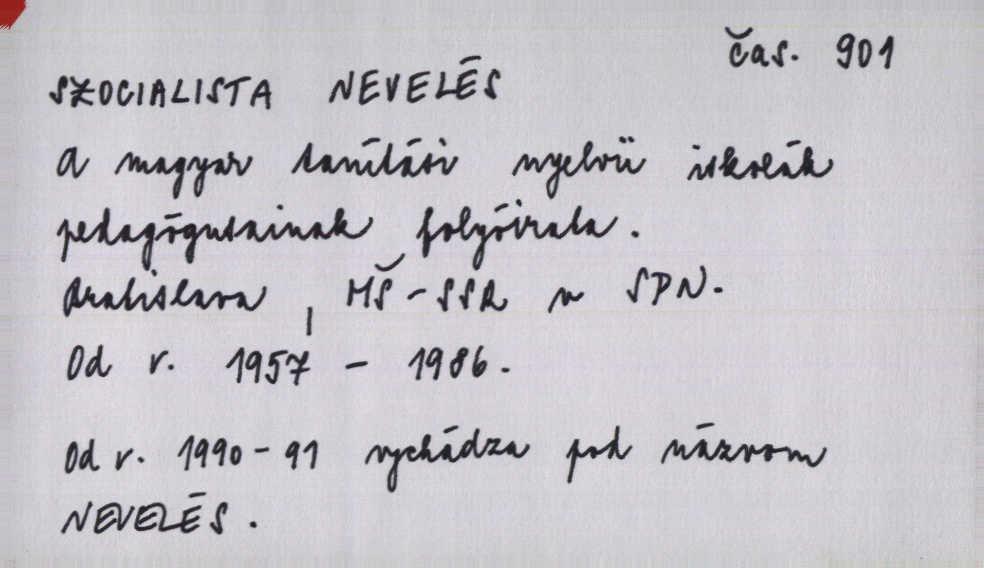 čas. 901
SZOCIALISTA NEVELÉS
A magyar tanítási nyelvü iskolák
pedagógusainak folyóirata.
Bratislava, MŠ-SSR v SPN.
Od r. 1957 - 1986.
Od r. 1990-91 vychádza pod názvom
NEVELÉS.